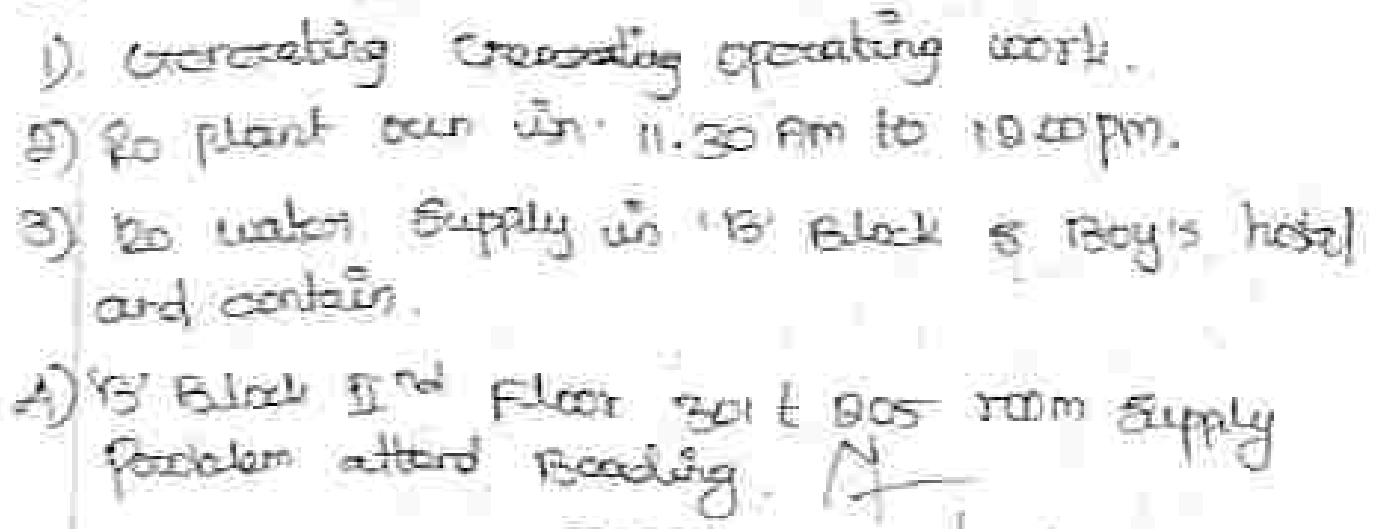 1). Generating Creassting operating work.
2) Ro plant run in 11.30 Am to 12.00 pm.
3) Ro water Supply in 'B' Block & Boy's hostel
and contain.
4) 'B' Block IInd Floor 301 t 205 room Supply
Problem attend